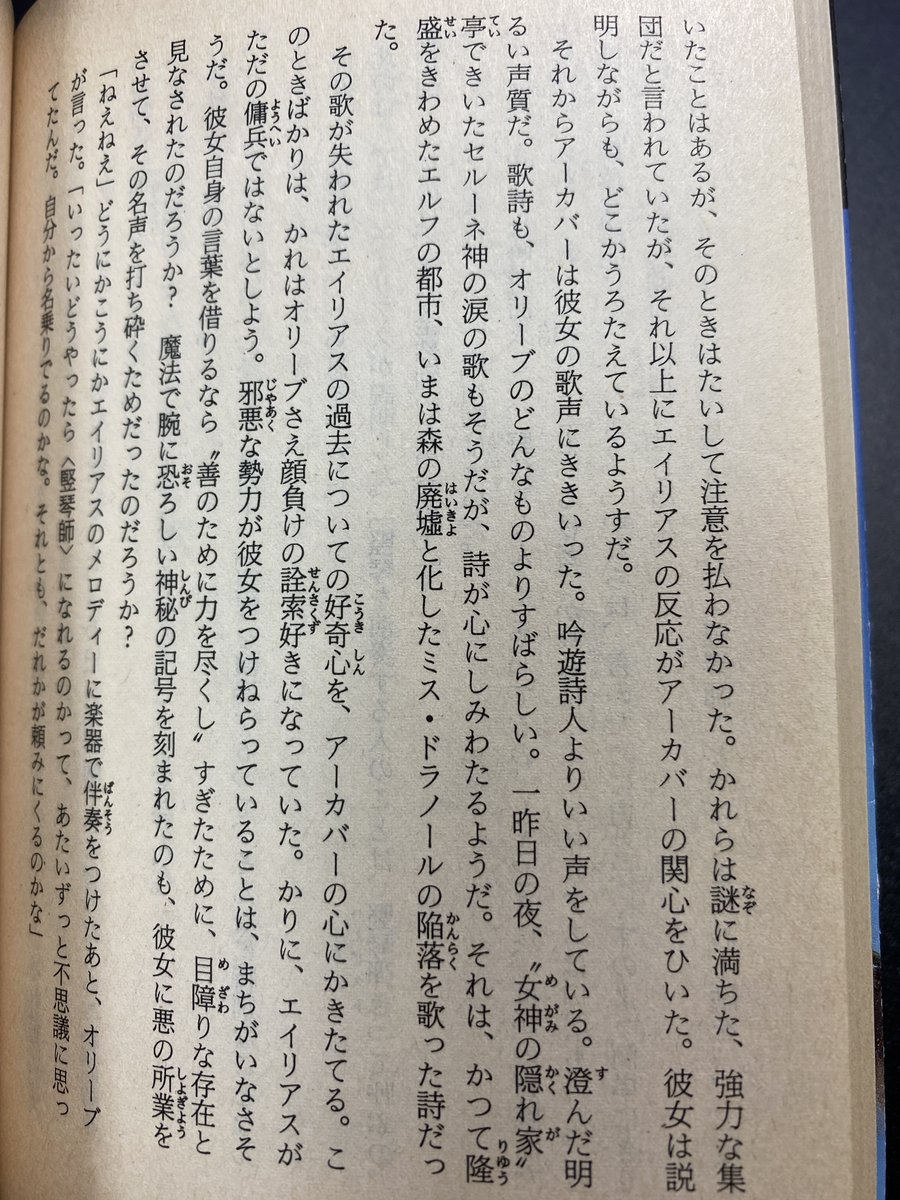 いたことはあるが、そのときはたいして注意を払わなかった。かれらは謎に満ちた、強力な集
団だと言われていたが、それ以上にエイリアスの反応がアーカバーの関心をひいた。彼女は説
明しながらも、どこかうろたえているようすだ。
それからアーカバーは彼女の歌声にききいった。吟遊詩人よりいい声をしている。澄んだ明
るい声質だ。歌詩も、オリーブのどんなものよりすばらしい。一昨日の夜、〝女神の隠れ家〟
亭できいたセルーネ神の涙の歌もそうだが、詩が心にしみわたるようだ。それは、かつて隆
盛をきわめたエルフの都市、いまは森の廃墟と化したミス・ドラノールの陥落を歌った詩だっ
た。
その歌が失われたエイリアスの過去についての好奇心を、アーカバーの心にかきたてる。こ
のときばかりは、かれはオリーブさえ顔負けの詮索好きになっていた。かりに、エイリアスが
ただの傭兵ではないとしよう。邪悪な勢力が彼女をつけねらっていることは、まちがいなさそ
うだ。彼女自身の言葉を借りるなら〝善のために力を尽くし〟すぎたために、目障りな存在と
見なされたのだろうか？　魔法で腕に恐ろしい神秘の記号を刻まれたのも、彼女に悪の所業を
させて、その名声を打ち砕くためだったのだろうか？
「ねえねえ」どうにかこうにかエイリアスのメロディーに楽器で伴奏をつけたあと、オリーブ
が言った。「いったいどうやったら〈竪琴師〉になれるのかって、あたいずっと不思議に思っ
てたんだ。自分から名乗りでるのかな。それとも、だれかが頼みにくるのかな」